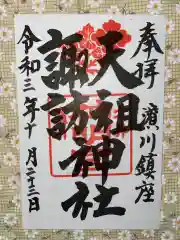 奉拝 濱川鎮座
天祖神社
諏訪神社
令和三年十月二十三日